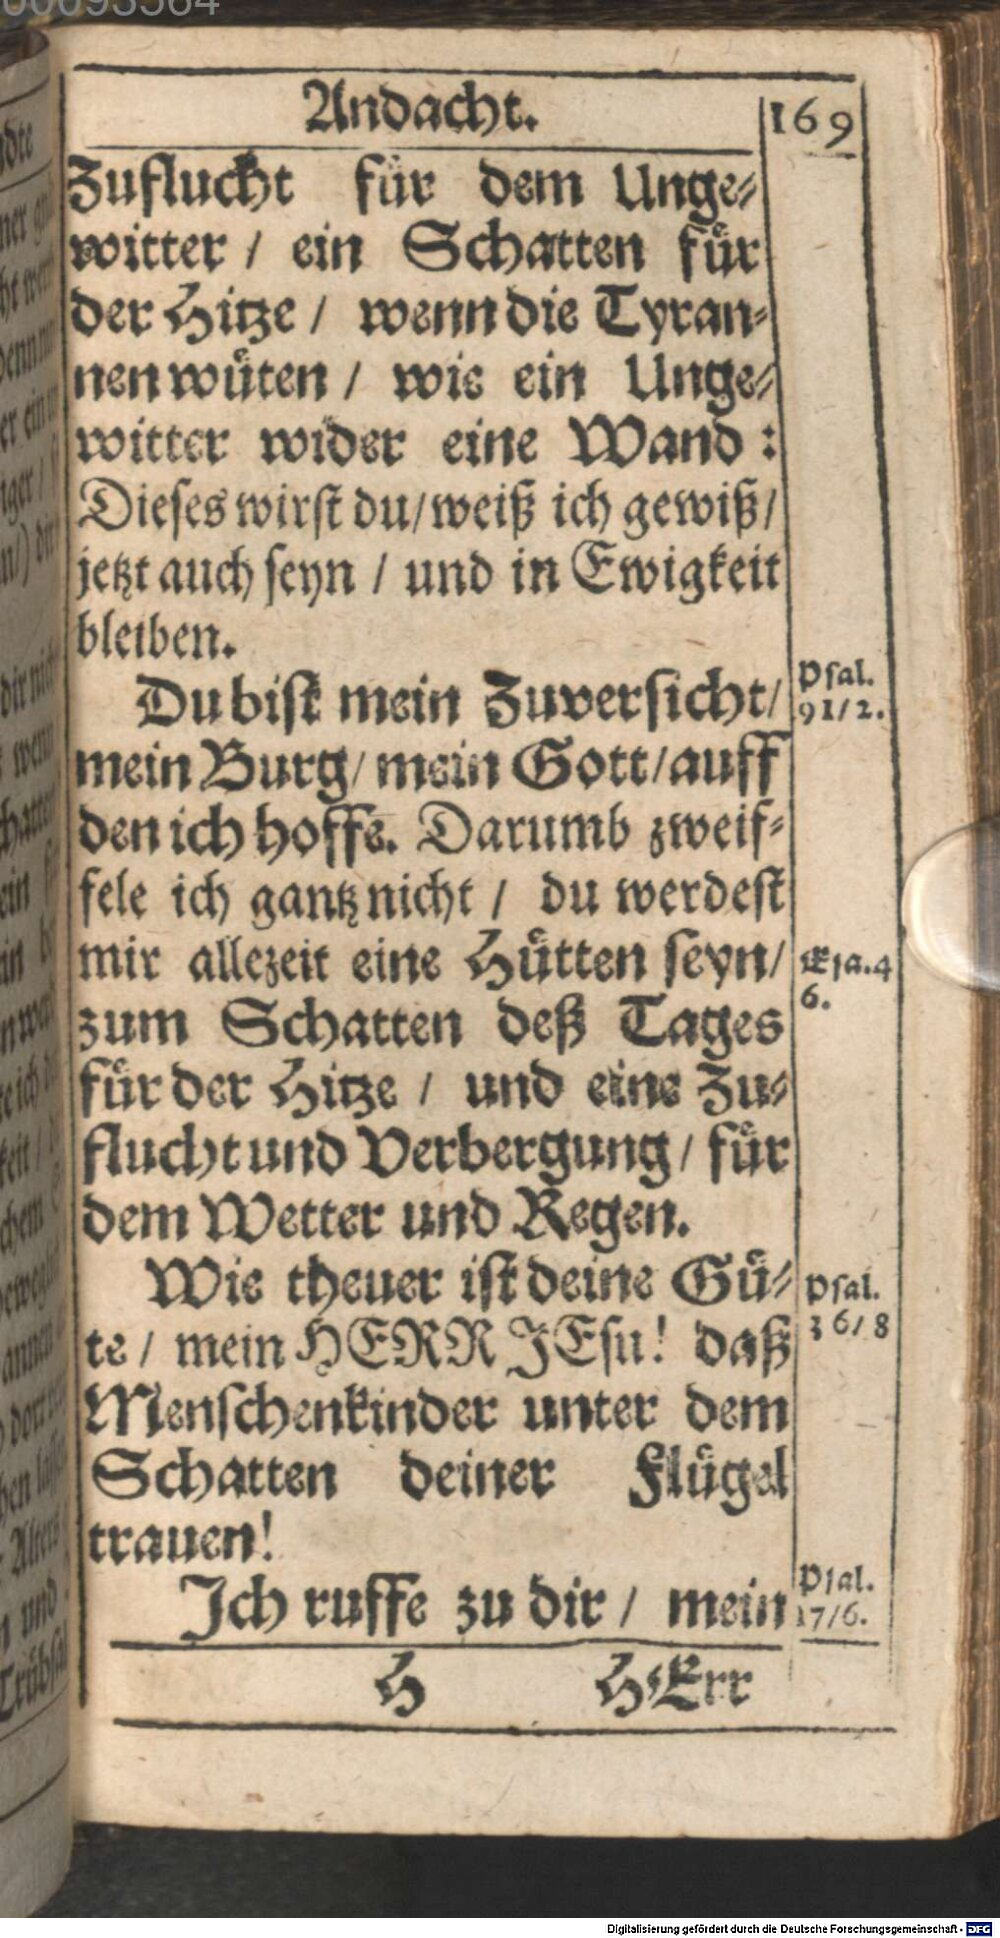 Andacht. 169
Zuflucht für dem Unge-
witter / ein Schatten für
der Hitze / wenn die Tyran-
nen wüten / wie ein Unge-
witter wider eine Wand :
Dieses wirst du / weiß ich gewiß /
jetzt auch seyn / und in Ewigkeit
bleiben.
Du bist mein Zuversicht /
Psal.
91/2.
mein Burg / mein Gott / auff
den ich hoffe. Darumb zweif-
fele ich gantz nicht / du werdest
mir allezeit eine Hütten seyn /
Esa. 4
6.
zum Schatten deß Tages
für der Hitze / und eine Zu-
flucht und Verbergung / für
dem Wetter und Regen.
Wie theuer ist deine Gü-
Psal.
36/8
te / mein HERR JEsu! daß
Menschenkinder unter dem
Schatten deiner Flügel
trauen!
Ich ruffe zu dir / mein
Psal.
17/6.
H HErr
Digitalisierung gefördert durch die Deutsche Forschungsgemeinschaft - DFG